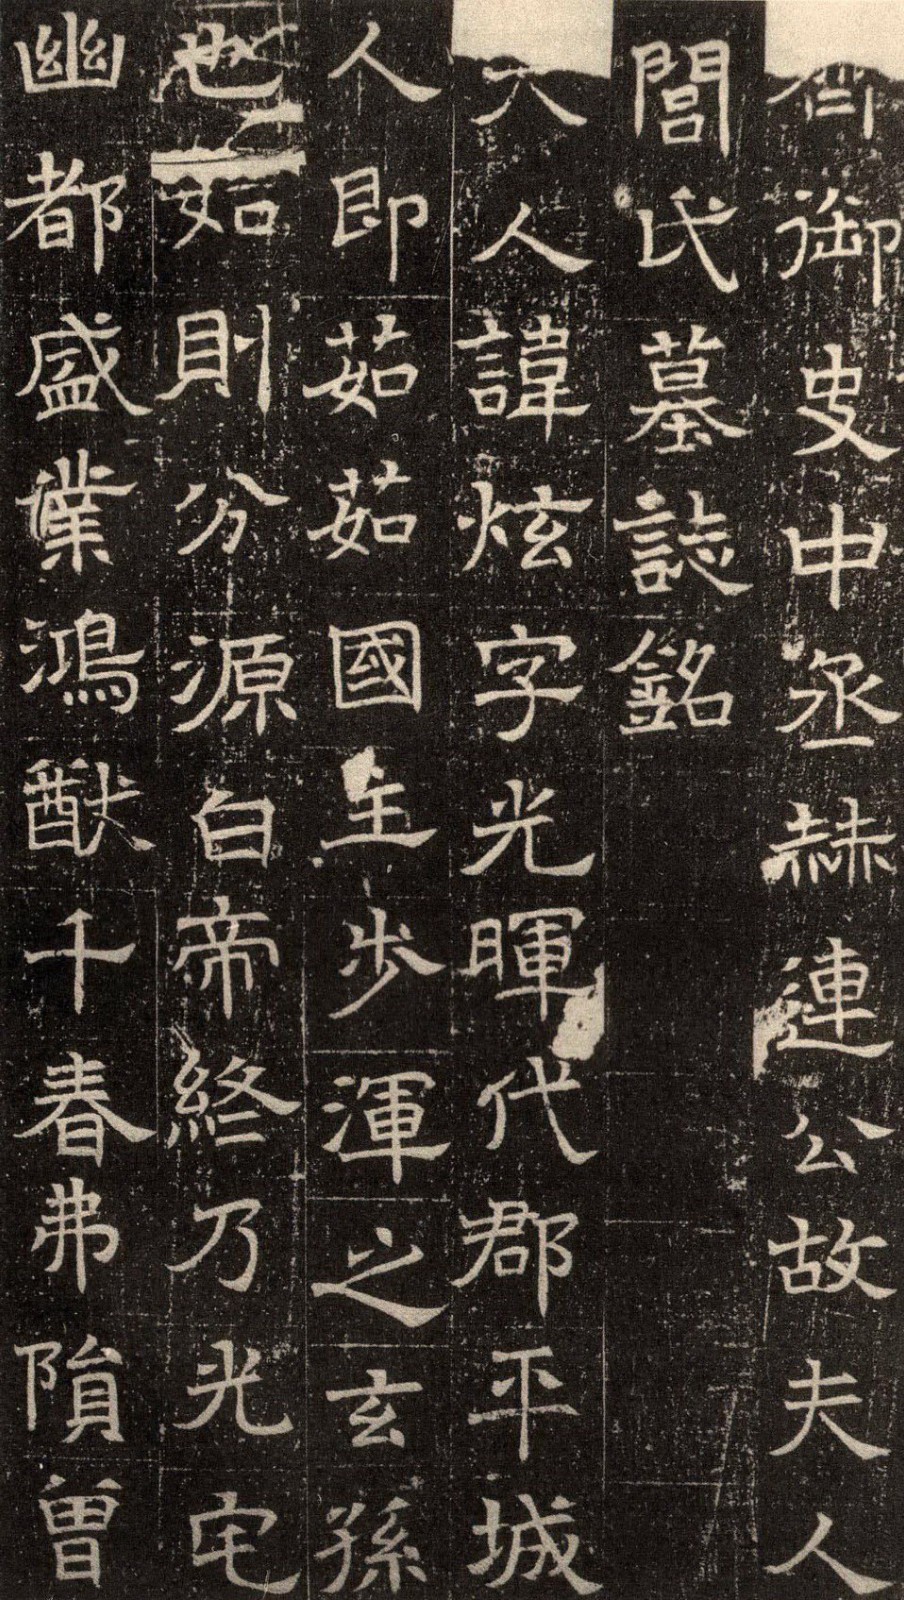 齊御史中丞赫連公故夫人
閭氏墓誌銘
夫人諱炫字光暉代郡平城
人即茹茹國主步渾之玄孫
也始則分源白帝終乃光宅
幽都盛業鴻猷千春弗隕曾